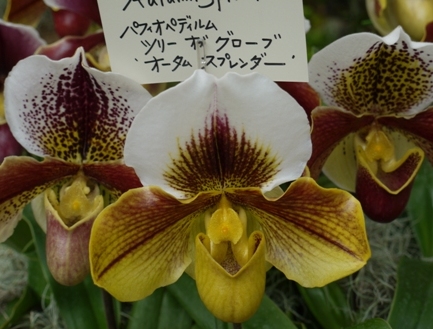 パフィオペディルム
ツリー オブ グローブ
'オータム スプレンダー'